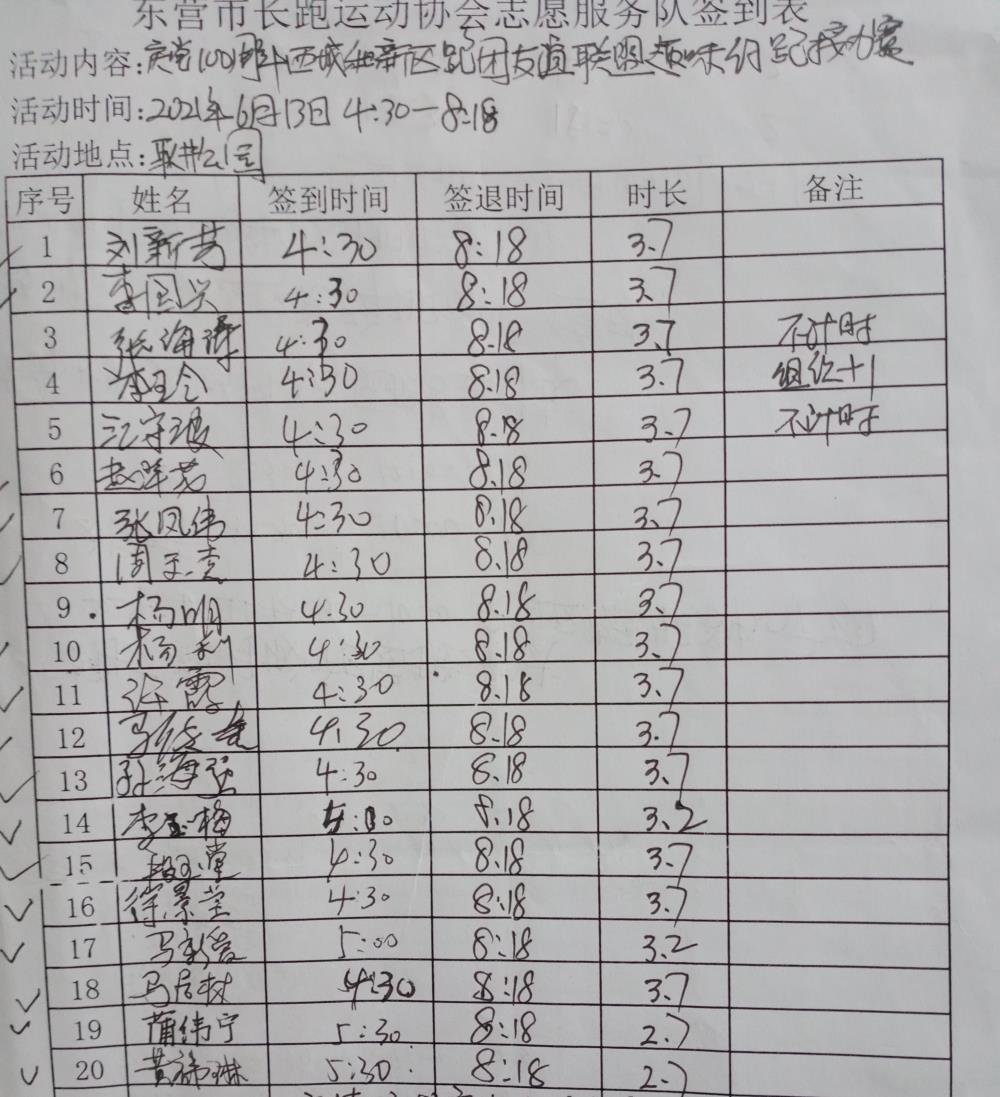 东营市长跑运动协会志愿服务队签到表
活动内容:庆党100周年西城和新区跑团友谊联盟趣味约跑接力赛
活动时间:2021年6月13日 4:30—8:18
活动地点:耿井公园
序号 姓名 签到时间 签退时间 时长 备注
1 刘新芳 4:30 8:18 3.7
2 李国兴 4:30 8:18 3.7
3 张海涛 4:30 8.18 3.7 不计时
4 4:30 8.18 3.7 组织+1
5 江守浪 4:30 8.18 3.7 不计时
6 赵洋芳 4:30 8.18 3.7
7 张凤伟 4:30 8.18 3.7
8 周玉亮 4:30 8.18 3.7
9 杨明 4.30 8.18 3.7
10 杨利 4:30 8.18 3.7
11 许霞 4:30 8.18 3.7
12 马俊 4:30 8.18 3.7
13 孙海 4:30 8.18 3.7
14 李玉梅 5:00 8.18 3.2
15 段玉堂 4:30 8.18 3.7
16 徐景堂 4:30 8:18 3.7
17 马新爱 5:00 8:18 3.2
18 马居材 4:30 8:18 3.7
19 蒲伟宁 5:30 8:18 2.7
20 黄福琳 5:30 8:18 2.7